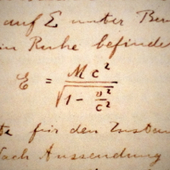 auf E unter
in Ruhe befindet
E = Mc² / √(1 - v²/c²)
für den
nach Aussendung